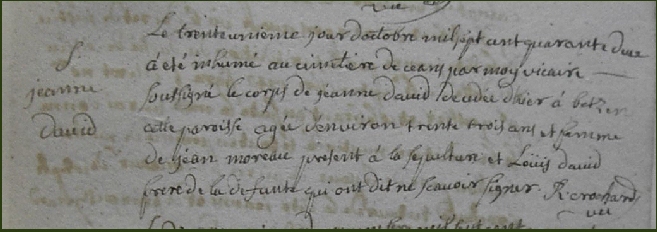 S.
jeanne
david
Le trente unieme jour d'octobre mil sept cent quarante deux
a été inhumé au cimetiere de ceans par moy vicaire
soussigné le corps de jeanne david decedée d'hier à
cette paroisse agée d'environ trente trois ans et femme
de jean moreau present à la sepulture et Loüis david
frere de la defunte qui ont dit ne scavoir signer. R crochard
vic